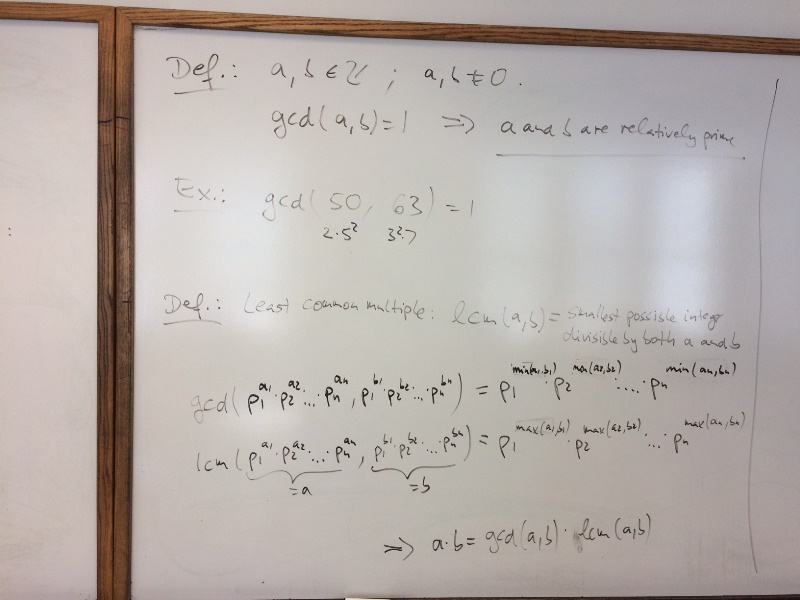 Def.: a, b ∈ ℤ ; a, b ≠ 0.
gcd(a,b)=1 => a and b are relatively prime
Ex.: gcd(50, 63) = 1
2·5² 3²·7
Def.: Least common multiple: lcm(a,b) = smallest possible integer
divisible by both a and b
gcd(p₁^a₁·p₂^a₂·...·pₙ^aₙ, p₁^b₁·p₂^b₂·...·pₙ^bₙ) = p₁^min(a₁,b₁)·p₂^min(a₂,b₂)·....·pₙ^min(aₙ,bₙ)
lcm(p₁^a₁·p₂^a₂·...·pₙ^aₙ, p₁^b₁·p₂^b₂·...·pₙ^bₙ) = p₁^max(a₁,b₁)·p₂^max(a₂,b₂)·...·pₙ^max(aₙ,bₙ)
=a =b
=> a·b = gcd(a,b)·lcm(a,b)